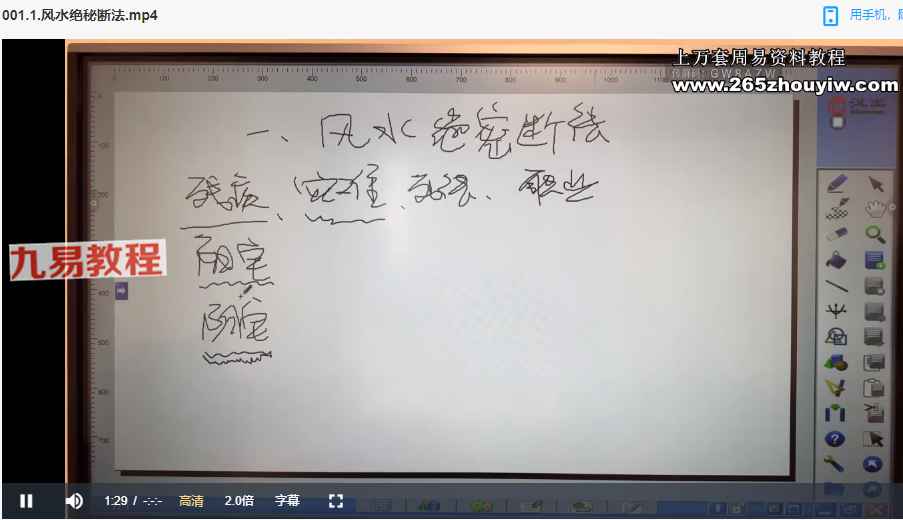 001.1.风水绝秘断法.mp4
用手机，
上万套周易资料教程
www.265zhouyiw.com
一、风水绝密断法
残疾、
职业
阳宅
阴宅
九易教程
1:29 / -:-:-
高清
2.0倍
字幕